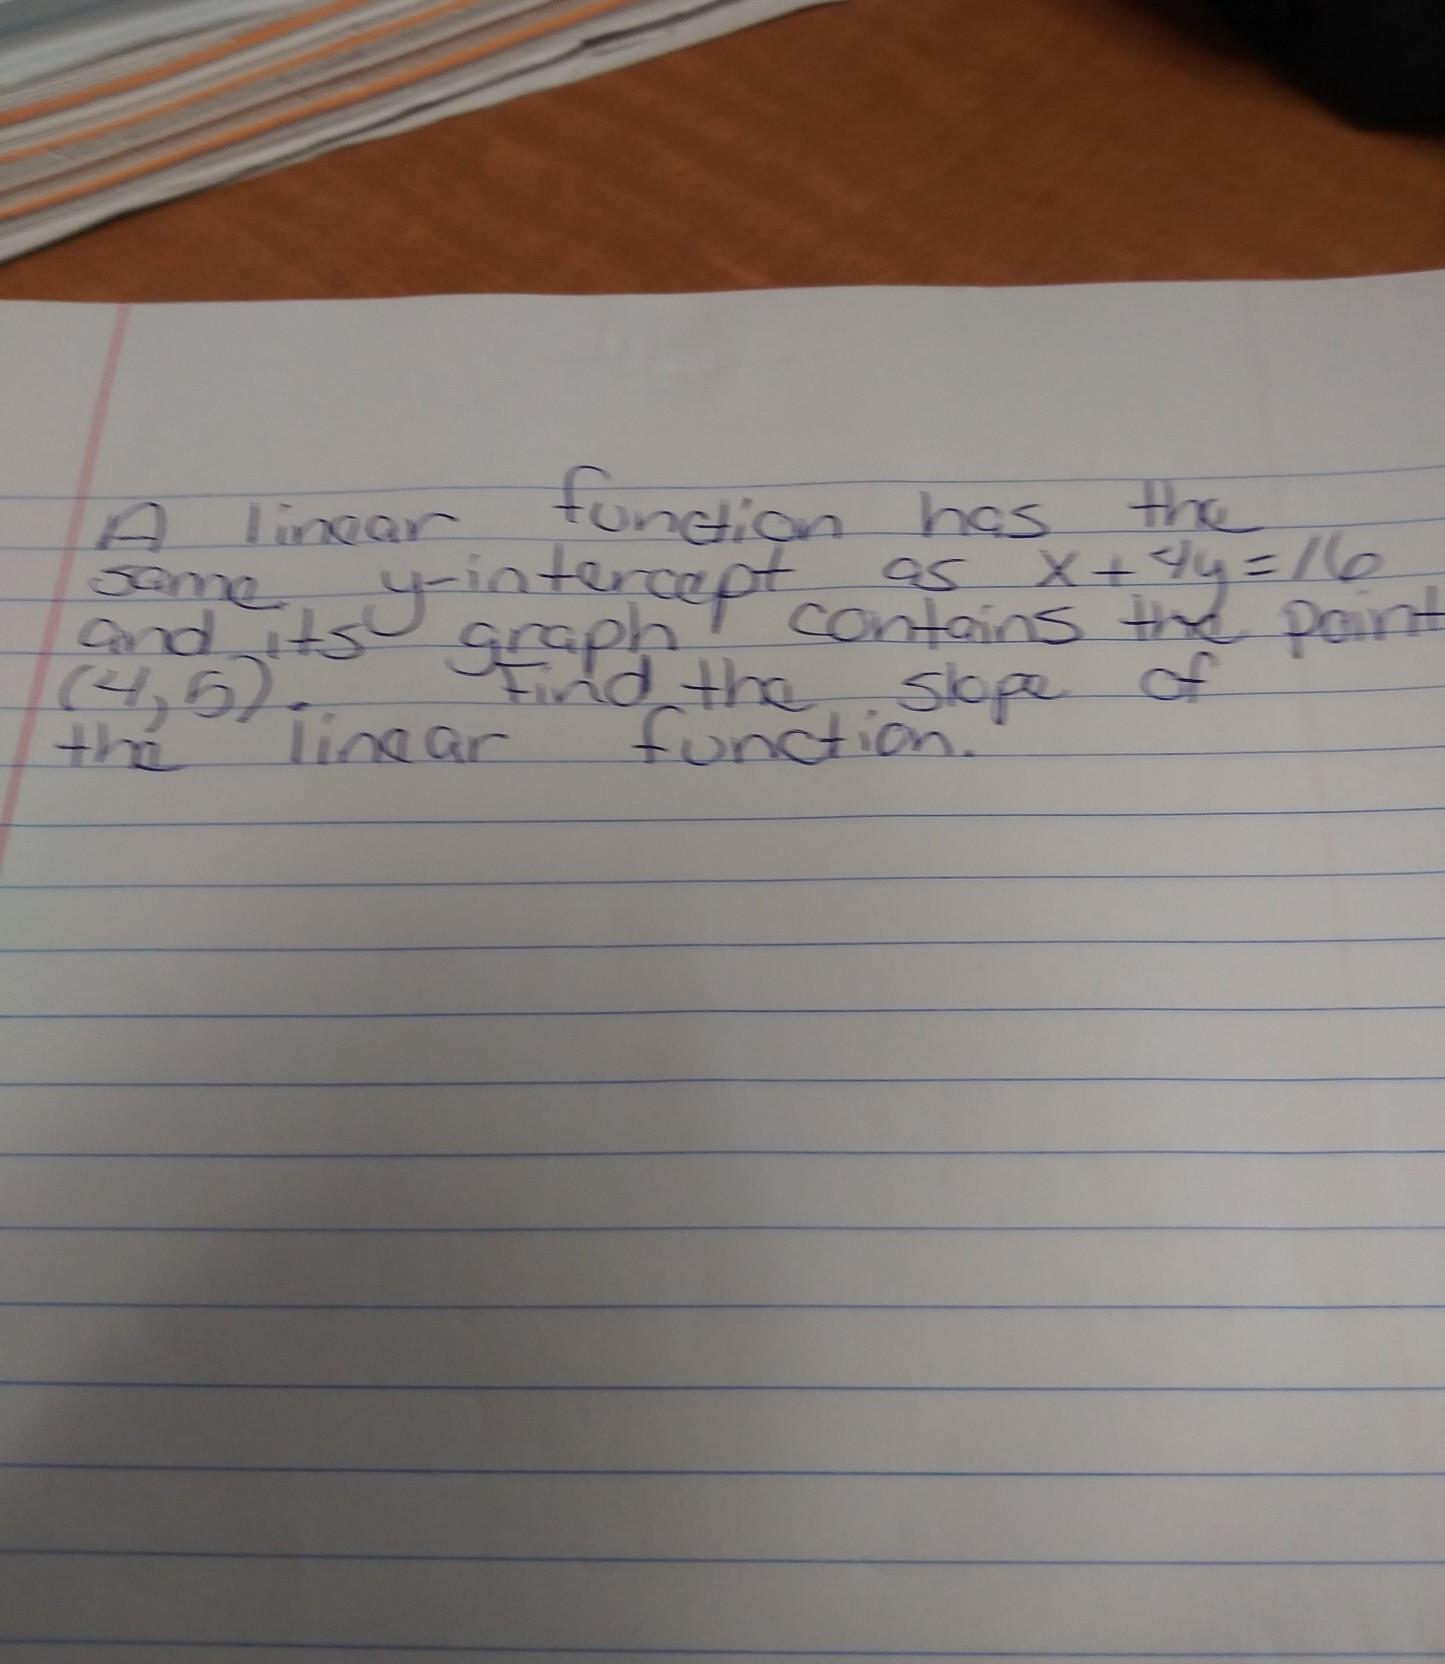 A linear function has the
same y-intercept as x + 4y = 16
and its graph contains the point
(4, 5). Find the slope of
the linear function.